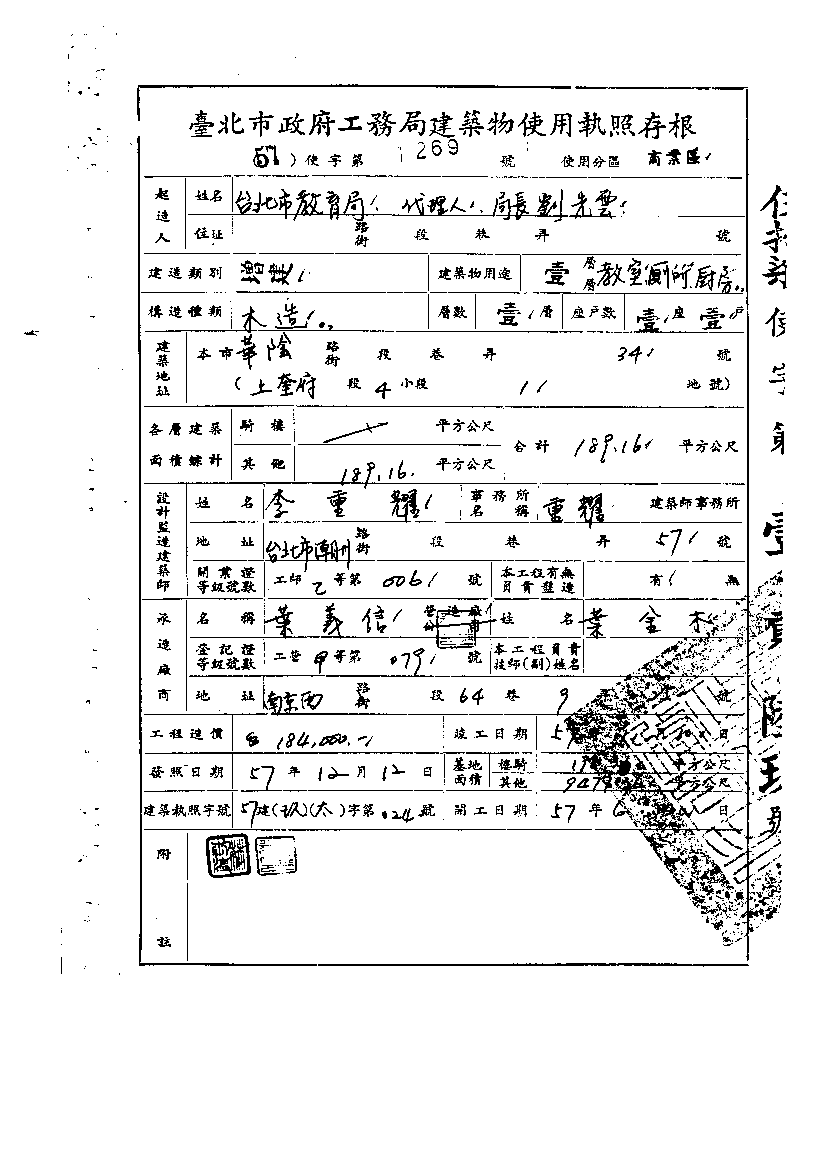 臺北市政府工務局建築物使用執照存根
(57)使字第 1269 號 使用分區 商業區
起造人 姓名 台北市教育局 代理人 局長劉先雲
住址 路街 段 巷 弄 號
建造類別 建築物用途 壹層 層 教室廁所厨房
構造種類 木造 層數 壹層 座戶數 壹座壹戶
建築地址 本市華陰 路街 段 巷 弄 34 號
(上奎府 段 4 小段 11 地號)
各層建築面積縂計 騎樓 平方公尺 合計 189.16 平方公尺
其他 189.16 平方公尺
設計監造建築師 姓名 李重耀 事務所名稱 重耀 建築師事務所
地址 台北市潮州 路街 段 巷 弄 57 號
開業證等級號數 工師乙等第 006 號 本工程有無負責監造 有 無
承造廠商 名稱 葉義信 營造廠 公司 姓名 葉金木
登記證等級號數 工營甲等第 079 號 本工程負責技師(副)姓名
地址 南京西 路街 段 64 巷 9 號
工程造價 184,000.- 竣工日期 57 日
發照日期 57年12月12日 基地面積 樓騎 平方公尺
其他 平方公尺
建築執照字號 57建(玖)(太)字第024號 開工日期 57年6 日
附註
使字第壹